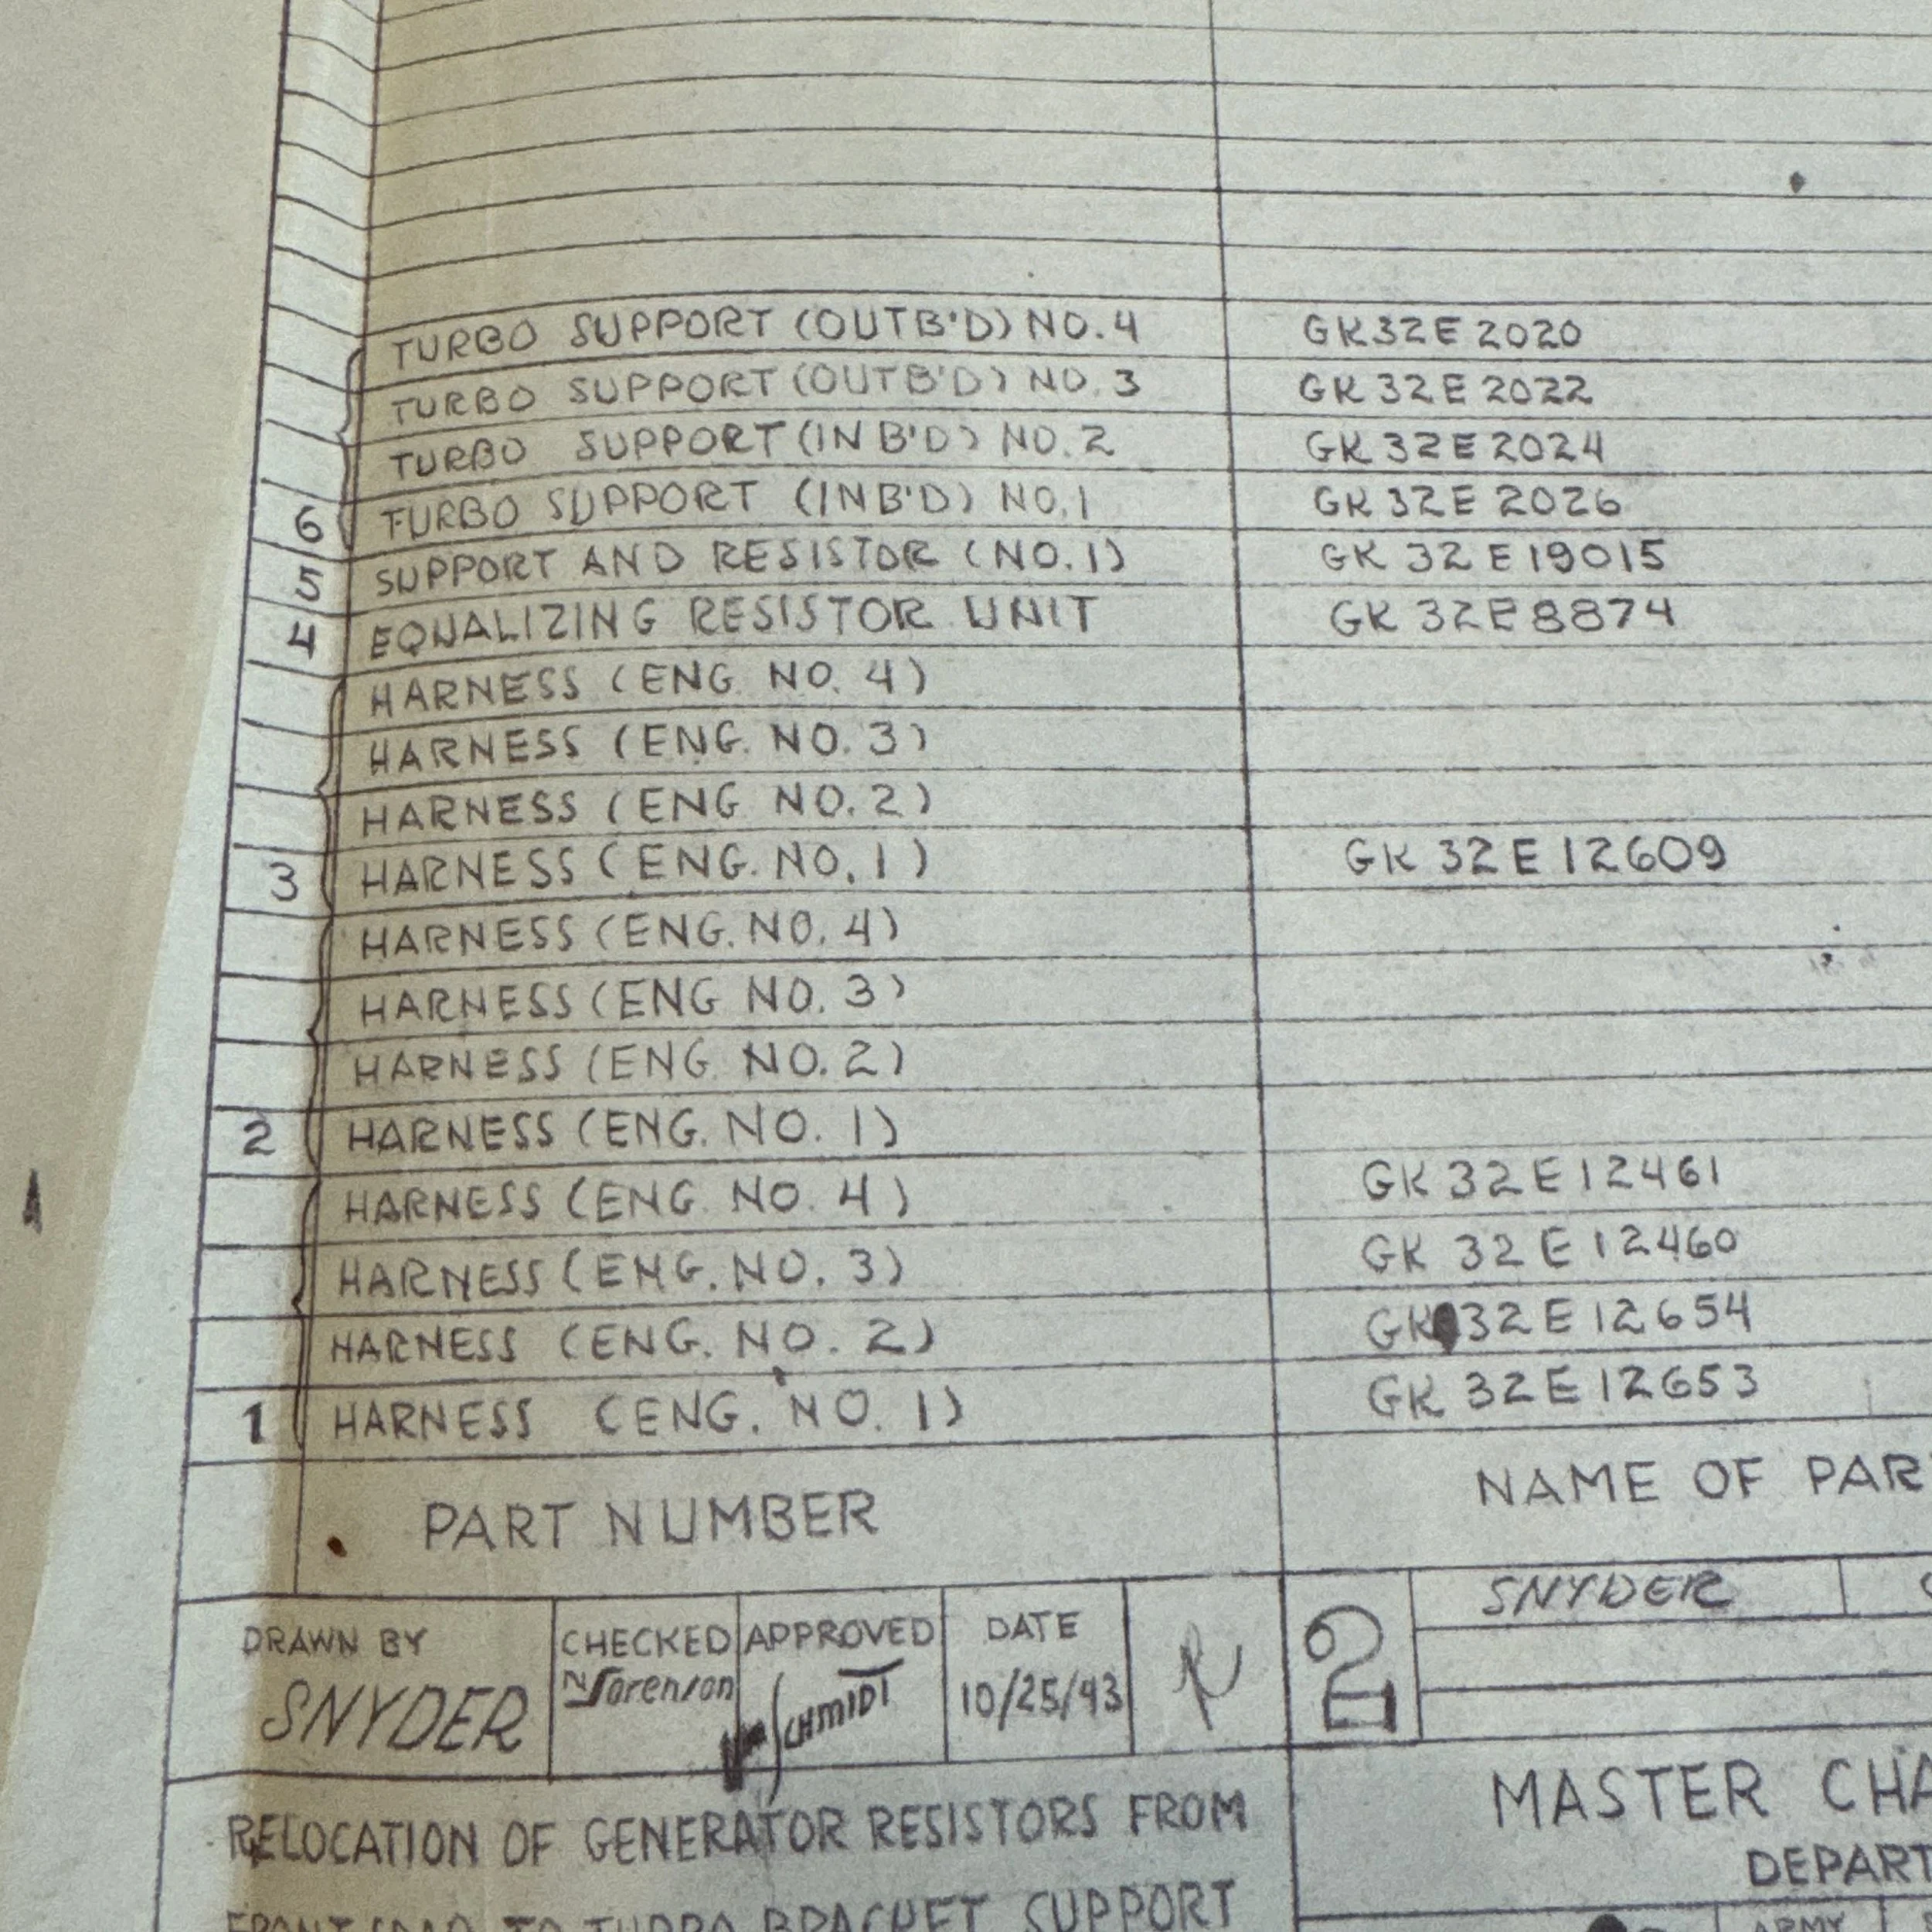 TURBO SUPPORT (OUTB'D) NO. 4 GK32E2020
TURBO SUPPORT (OUTB'D) NO. 3 GK32E2022
TURBO SUPPORT (INB'D) NO. 2 GK32E2024
6 TURBO SUPPORT (INB'D) NO. 1 GK32E2026
5 SUPPORT AND RESISTOR (NO. 1) GK32E19015
4 EQUALIZING RESISTOR UNIT GK32E8874
HARNESS (ENG. NO. 4)
HARNESS (ENG. NO. 3)
HARNESS (ENG NO. 2)
3 HARNESS (ENG. NO. 1) GK32E12609
HARNESS (ENG. NO. 4)
HARNESS (ENG NO. 3)
HARNESS (ENG. NO. 2)
2 HARNESS (ENG. NO. 1)
HARNESS (ENG. NO. 4) GK32E12461
HARNESS (ENG. NO. 3) GK32E12460
HARNESS (ENG. NO. 2) GK32E12654
1 HARNESS (ENG. NO. 1) GK32E12653
PART NUMBER NAME OF PAR
DRAWN BY CHECKED APPROVED DATE 12 SNYDER
SNYDER N Sorenson Wm Schmidt 10/25/43
RELOCATION OF GENERATOR RESISTORS FROM MASTER CHA
DEPART
FRONT SPAR TO TURBO BRACKET SUPPORT
ARMY